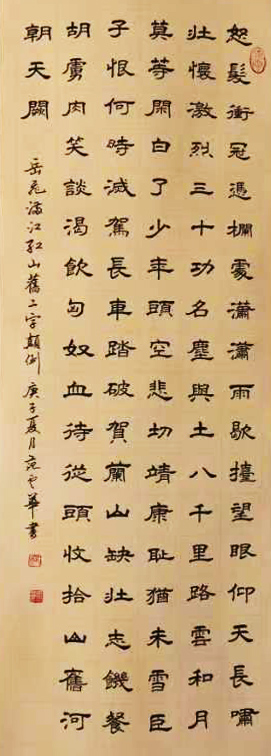 怒髮衝冠憑欄處瀟瀟雨歇擡望眼仰天長嘯
壯懷激烈三十功名塵與土八千里路雲和月
莫等閑白了少年頭空悲切靖康恥猶未雪臣
子恨何時滅駕長車踏破賀蘭山缺壯志饑餐
胡虜肉笑談渴飲匈奴血待從頭收拾山舊河
朝天闕
岳飛滿江紅山舊二字顛倒 庚子夏月范云華書